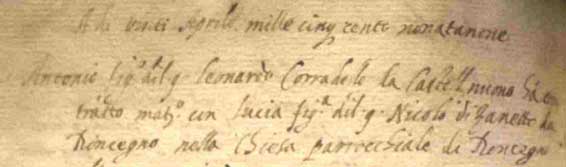 A di venti Aprile mille cinq cento nonatanove
Antonio fig.º dil q. Leonardo Corradello da Castelnuovo hà con
tratto mat.º con Lucia fig.ª dil q. Nicolò di Zanetto da
Roncegno nella Chiesa parrocchiale di Roncegno